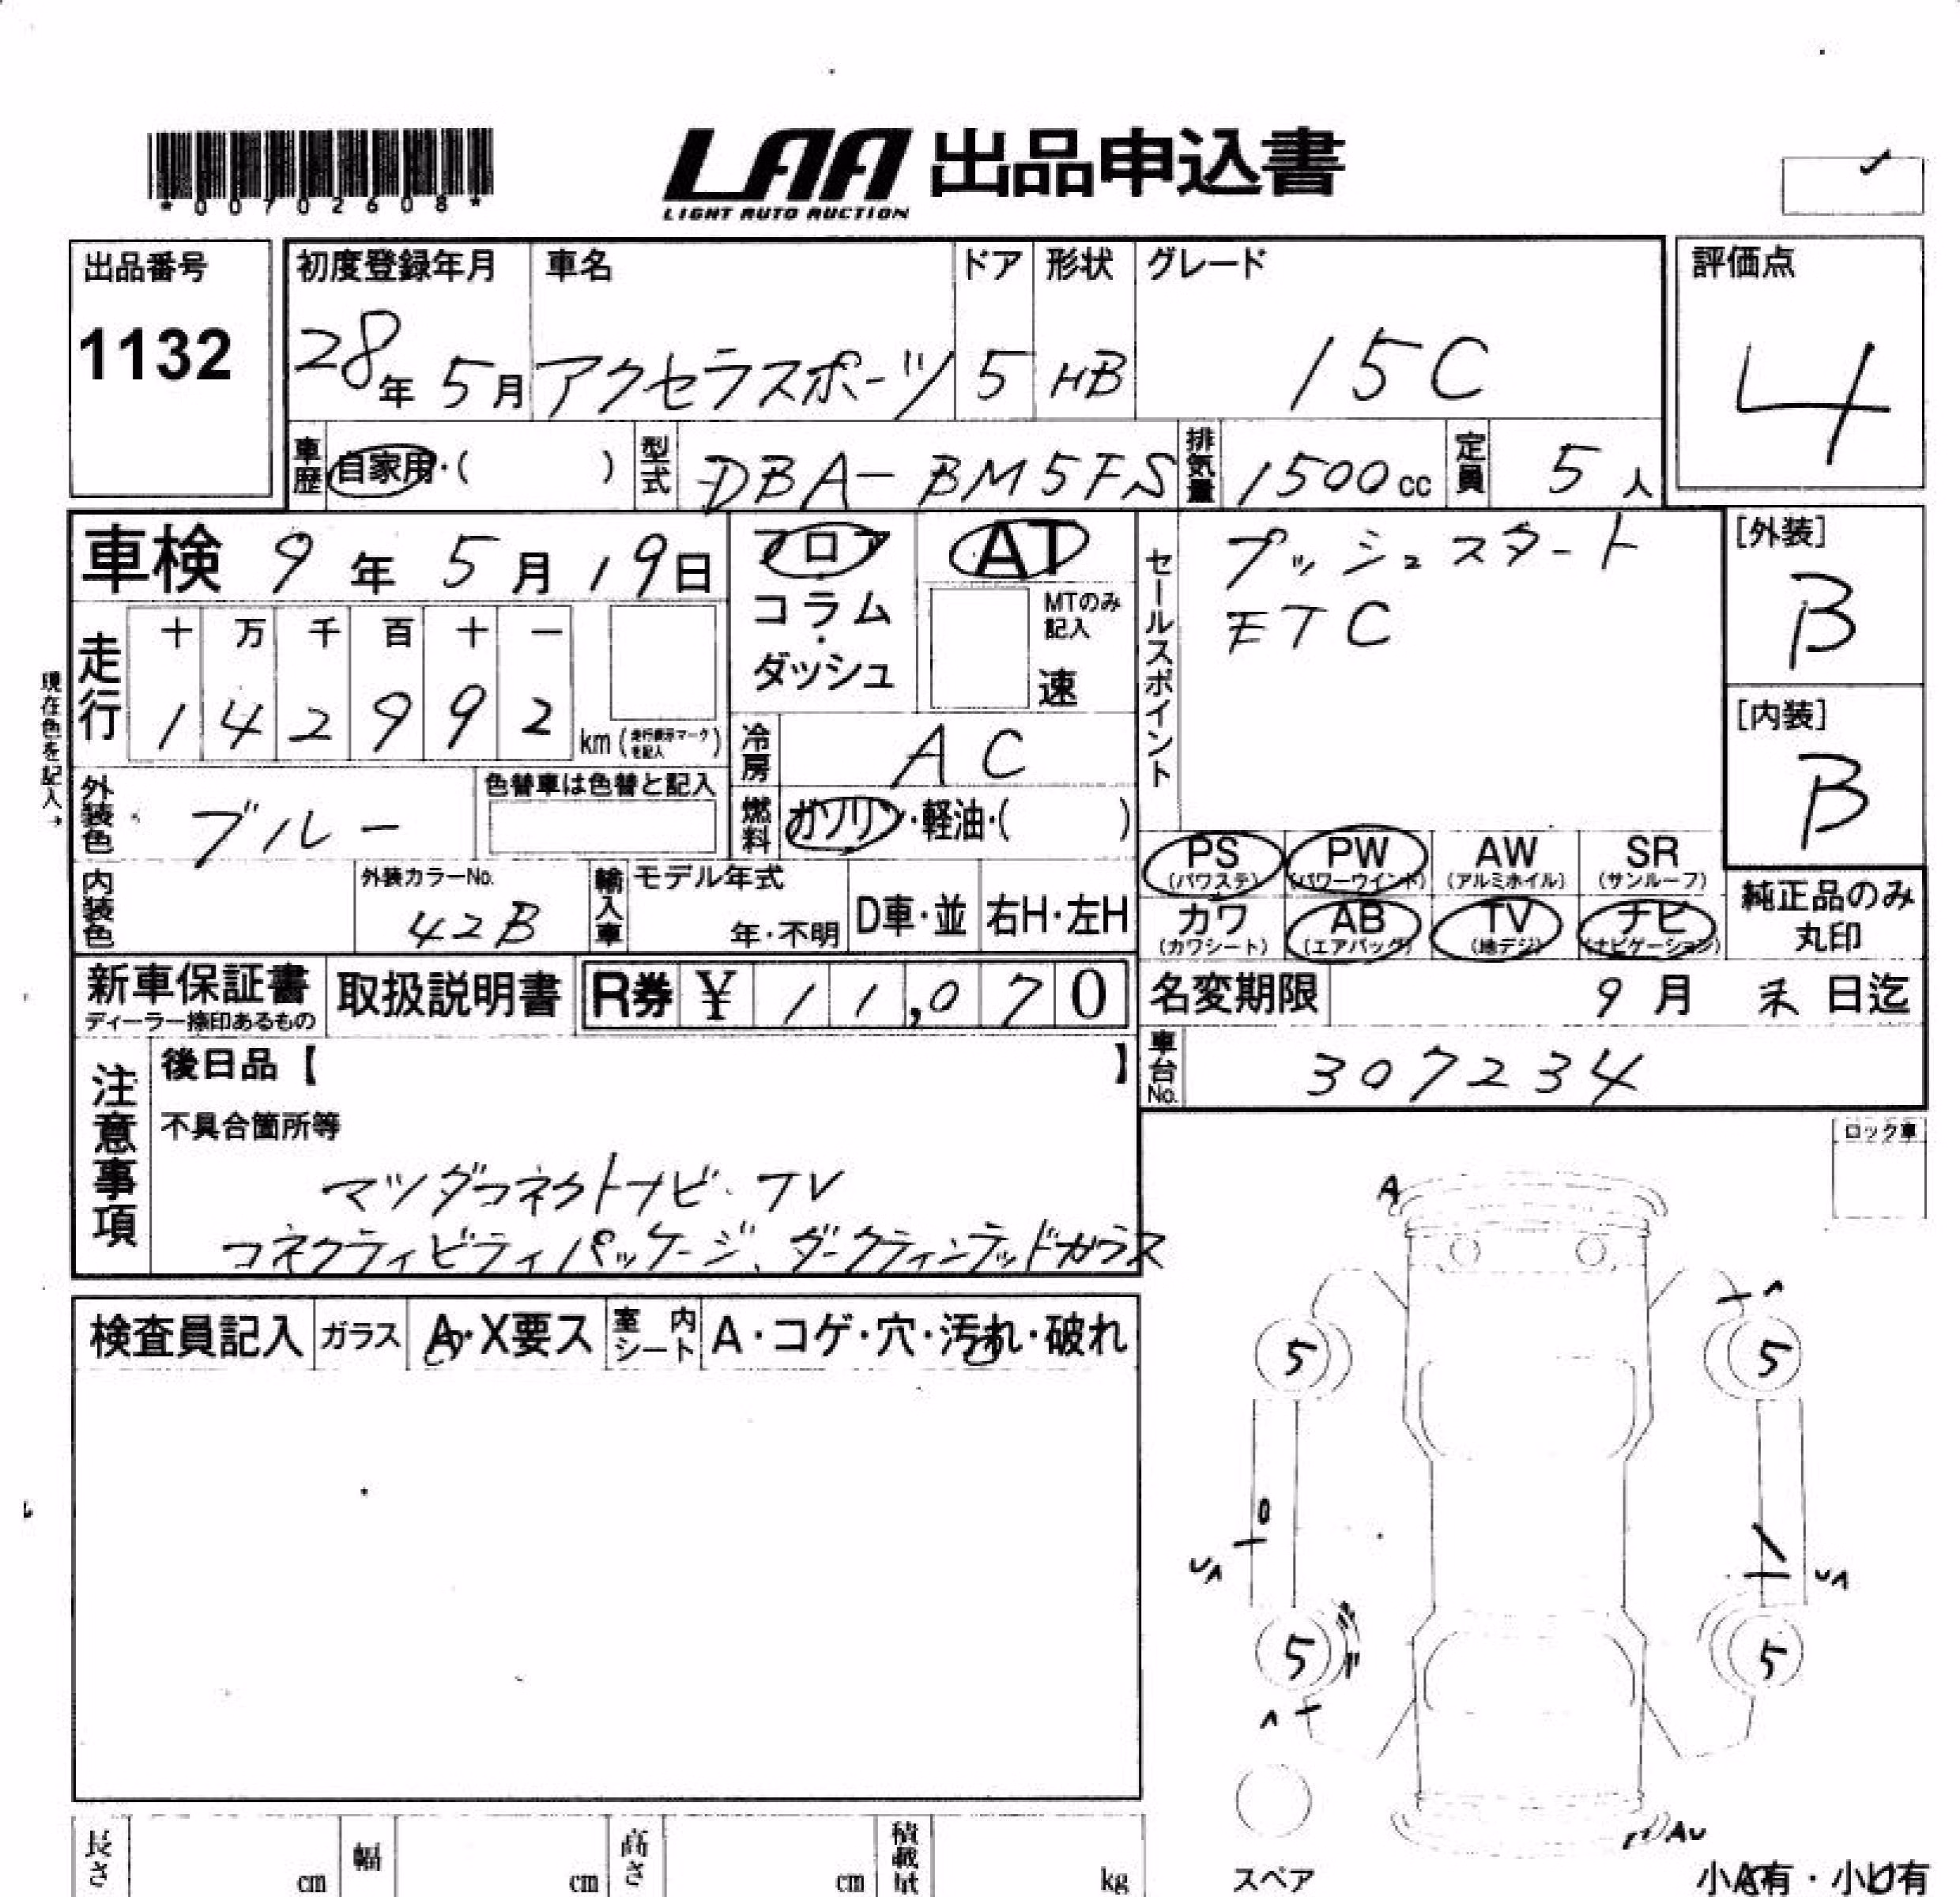 *00702608*
LAA 出品申込書
LIGHT AUTO AUCTION
出品番号
1132
初度登録年月
28年 5月
車名
アクセラスポーツ
ドア
5
形状
HB
グレード
15C
評価点
4
車歴
自家用・( )
型式
DBA-BM5FS
排気量
1500cc
定員
5人
車検 9年 5月 19日
フロア
コラム
・
ダッシュ
AT
MTのみ
記入
速
セールスポイント
プッシュスタート
ETC
[外装]
B
[内装]
B
現在色を記入→
走行
十 万 千 百 十 一
1 4 2 9 9 2
km (走行表示マークを記入)
冷房
AC
外装色
ブルー
色替車は色替と記入
燃料
ガソリン・軽油・( )
PS
(パワステ)
PW
(パワーウインド)
AW
(アルミホイル)
SR
(サンルーフ)
カワ
(カワシート)
AB
(エアバッグ)
TV
(地デジ)
ナビ
(ナビゲーション)
純正品のみ
丸印
内装色
外装カラーNo.
42B
輸入車
モデル年式
年・不明
D車・並
右H・左H
新車保証書
ディーラー捺印あるもの
取扱説明書
R券 ¥ 11,070
名変期限
9月 末 日迄
車台No.
307234
注意事項
後日品【 】
不具合箇所等
マツダコネクトナビ・TV
コネクティビティパッケージ、ダークティンテッドガラス
ロック車
検査員記入
ガラス
A・X要ス
室内シート
A・コゲ・穴・汚れ・破れ
A
5
5
UA
UA
5
5
AU
スペア
長さ
cm
幅
cm
高さ
cm
積載量
kg
小A有・小U有